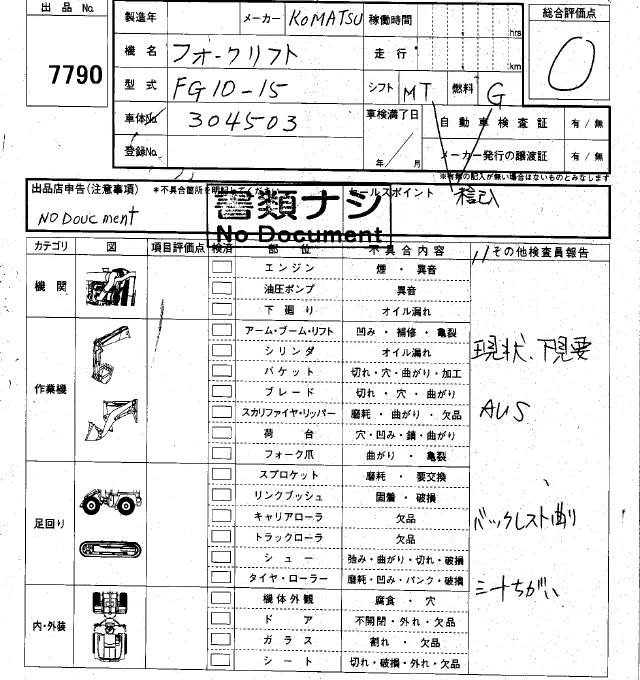 出品 No.
7790
製造年
メーカー KOMATSU
稼働時間 hrs
総合評価点
0
機名 フォークリフト
走行 km
型式 FG10-15
シフト MT
燃料 G
車体No. 304503
車検満了日 年/ 月
自動車検査証 有/無
登録No.
メーカー発行の譲渡証 有/無
※有無の記入が無い場合はないものとみなします
出品店申告(注意事項) *不具合箇所を明記してください
セールスポイント
NO Doucment
書類ナシ
No Document
カテゴリ 図 項目評価点 検済 部位 不具合内容 その他検査員報告
機関
エンジン 煙・異音
油圧ポンプ 異音
下廻り オイル漏れ
作業機
アーム・ブーム・リフト 凹み・補修・亀裂
シリンダ オイル漏れ
バケット 切れ・穴・曲がり・加工
ブレード 切れ・穴・曲がり
スカリファイヤ・リッパー 磨耗・曲がり・欠品
荷台 穴・凹み・錆・曲がり
フォーク爪 曲がり・亀裂
足回り
スプロケット 磨耗・要交換
リンクブッシュ 固着・破損
キャリアローラ 欠品
トラックローラ 欠品
シュー 弛み・曲がり・切れ・破損
タイヤ・ローラー 磨耗・凹み・パンク・破損
内・外装
機体外観 腐食・穴
ドア 不開閉・外れ・欠品
ガラス 割れ・欠品
シート 切れ・破損・外れ・欠品
現状、下見要
AUS
バックレスト曲り
シートちがい